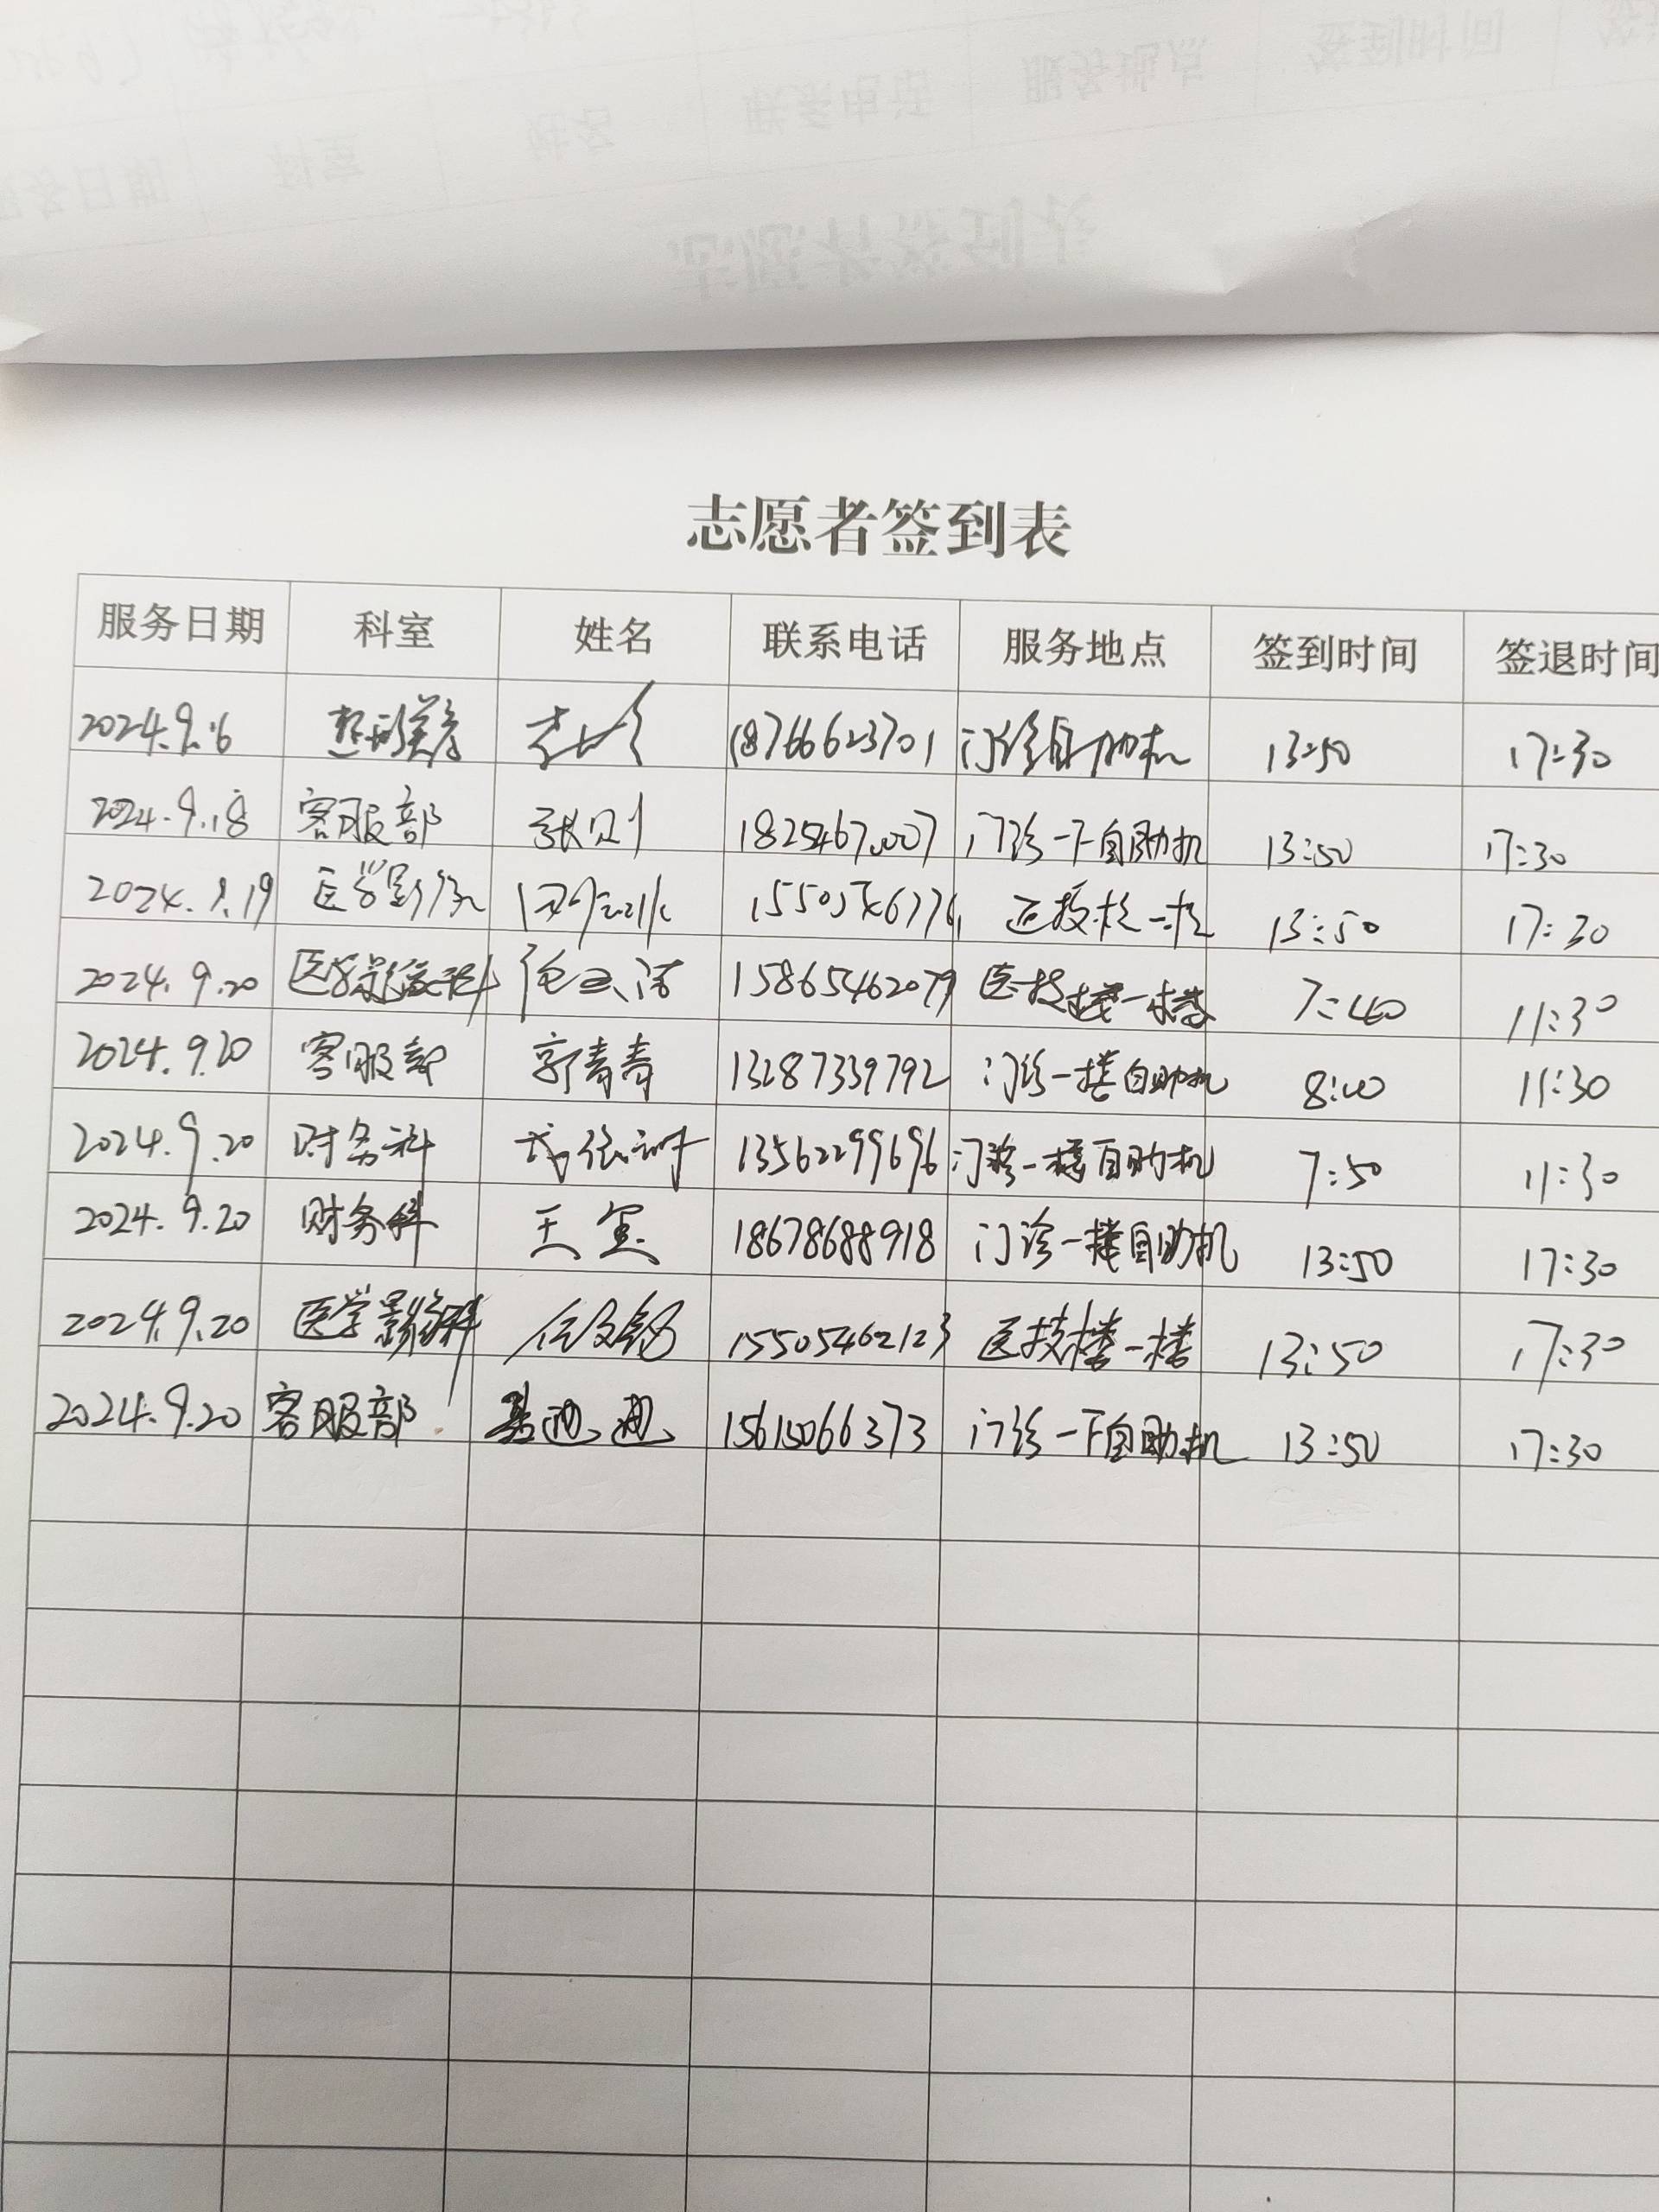 志愿者签到表
服务日期 科室 姓名 联系电话 服务地点 签到时间 签退时间
2024.9.16 整形美容 18766623701 门诊自助机 13:50 17:30
2024.9.18 客服部 门诊一下自助机 13:50 17:30
2024.9.19 医学影像 13:50 17:30
2024.9.20 医学影像科 15865462079 医技楼一楼 7:40 11:30
2024.9.20 客服部 郭青青 13287339792 门诊一楼自助机 8:00 11:30
2024.9.20 财务科 13562299696 门诊一楼自助机 7:50 11:30
2024.9.20 财务科 18678688918 门诊一楼自助机 13:50 17:30
2024.9.20 医学影像科 15505462123 医技楼一楼 13:50 17:30
2024.9.20 客服部 15615066373 门诊一下自助机 13:50 17:30